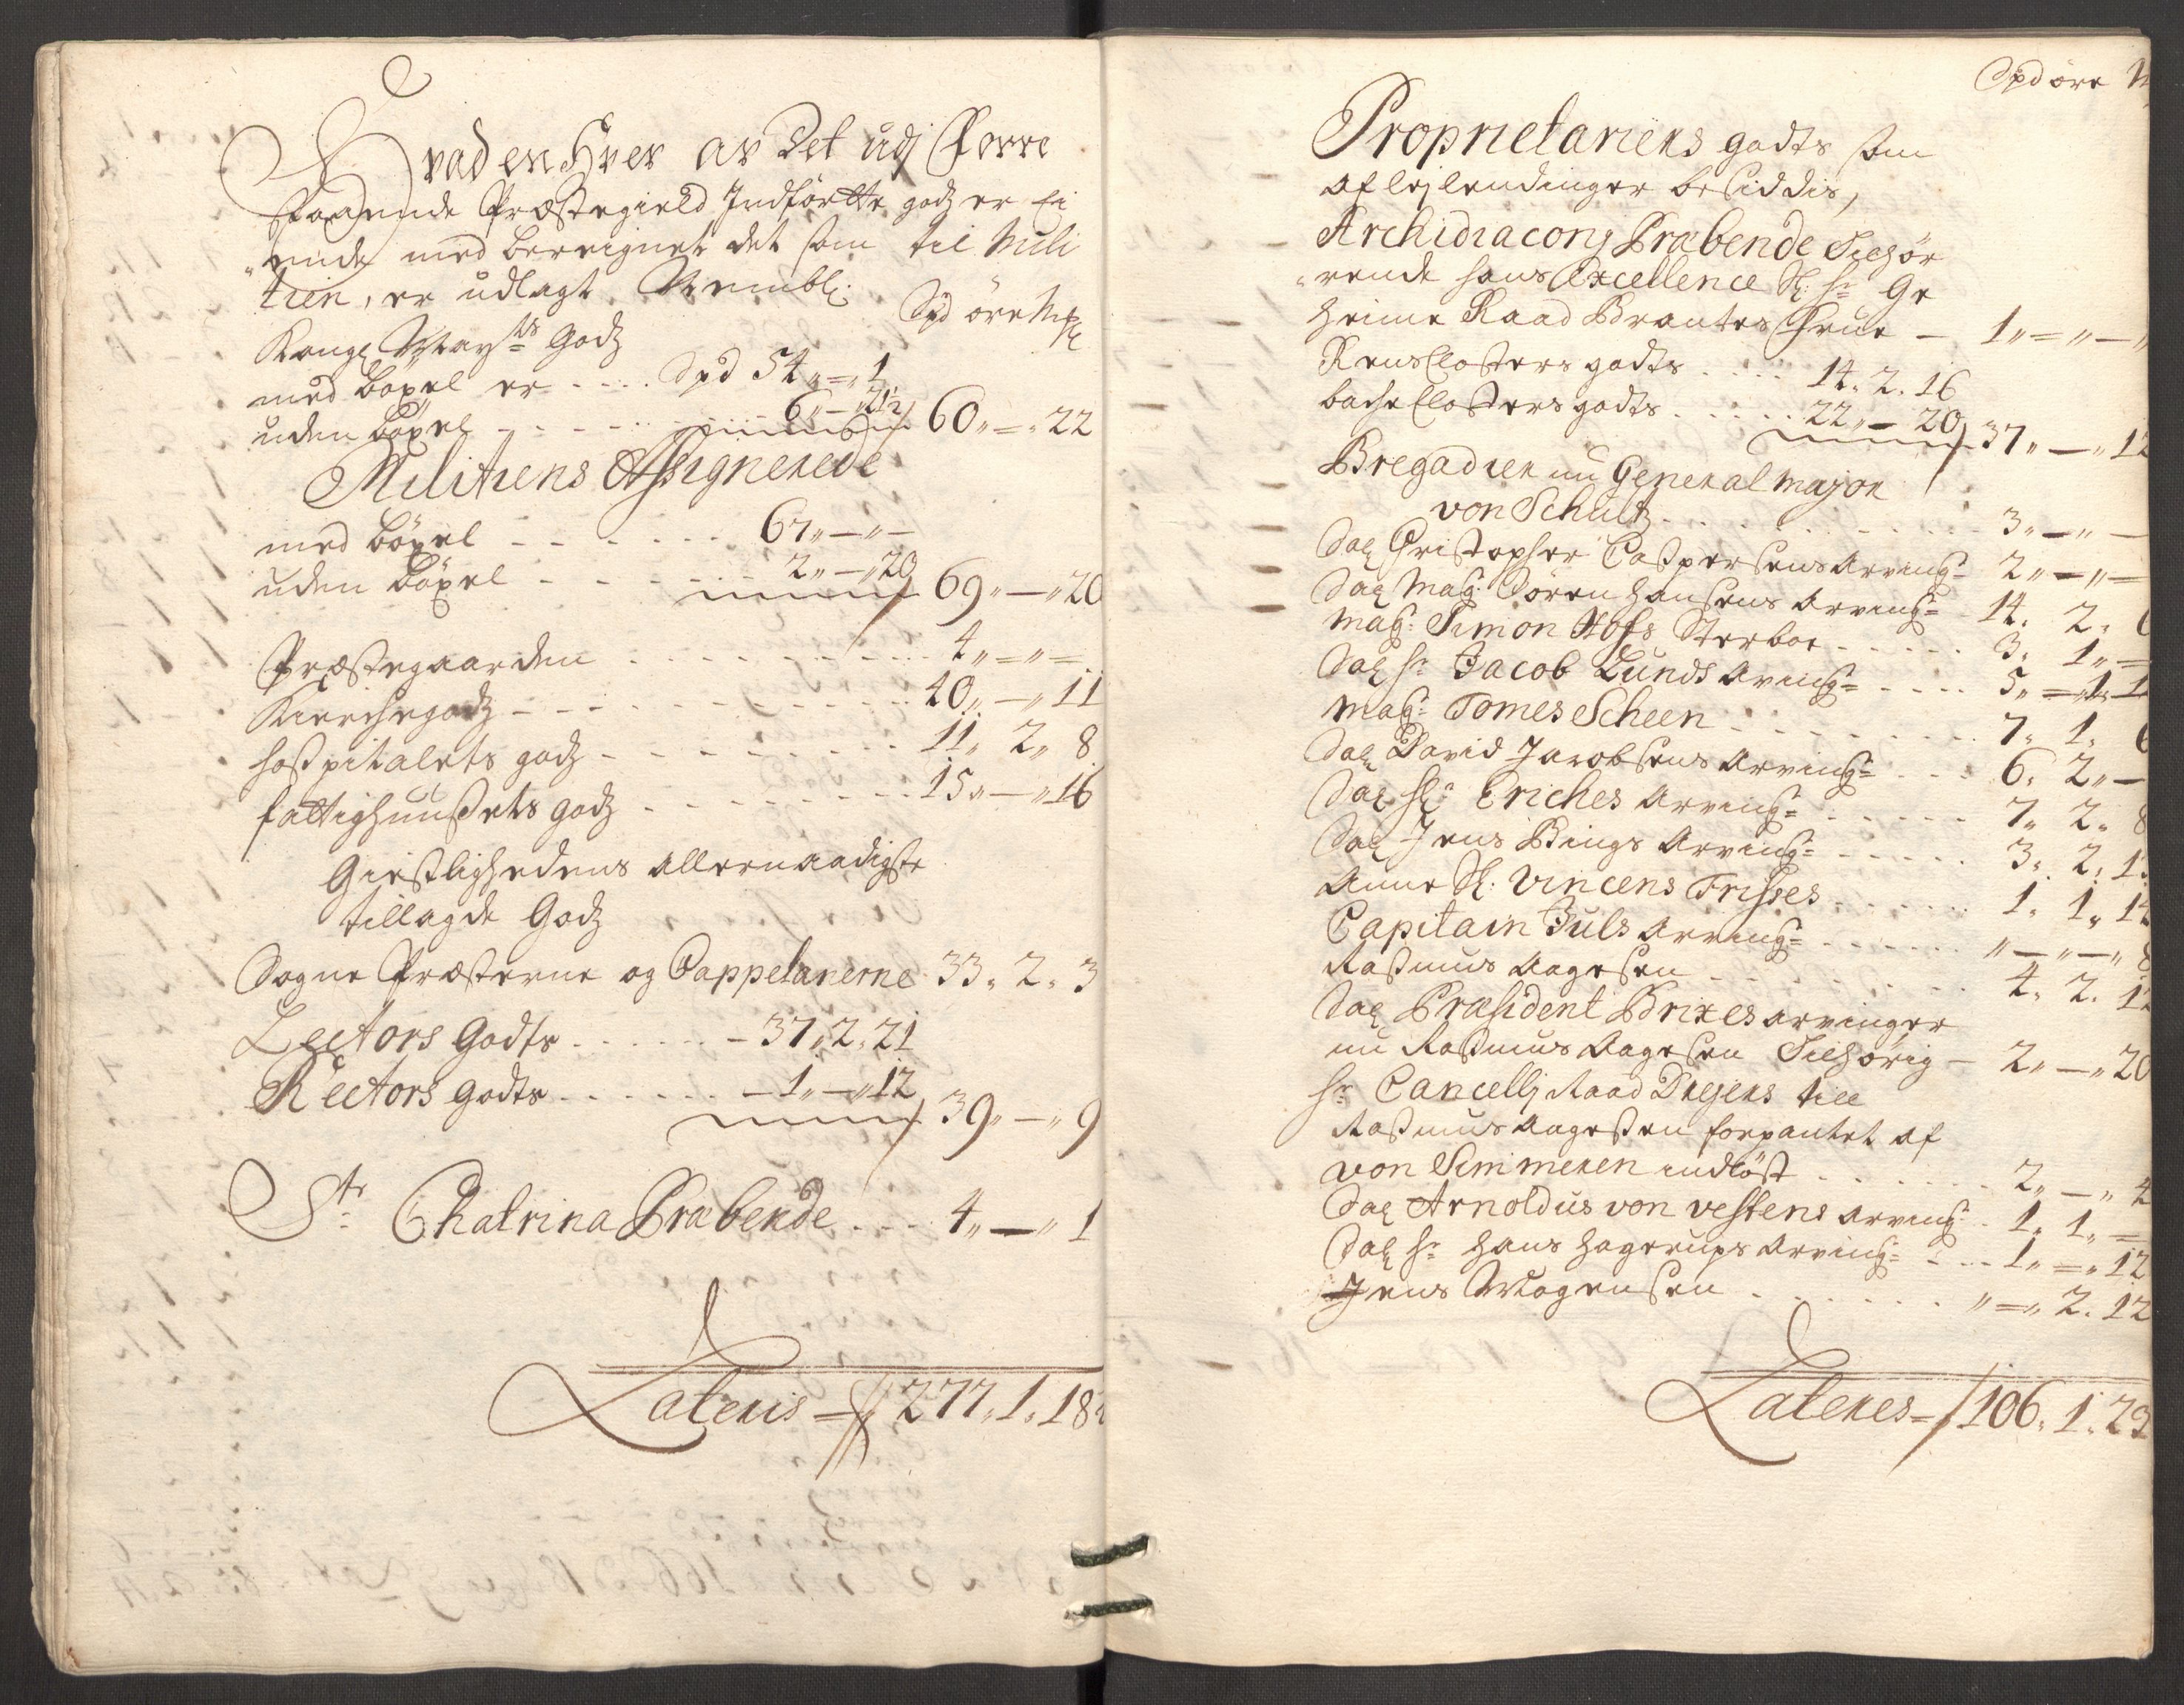 Hvad en Hver av Det udj Forre
staaende Præstegield Indførtte godz er Ei
"ende med bereignet det som til Mili
tien, er udlagt. Nembl:
Spd øre Mk
Kongl Mayts Godz
med bøxel er .... Spd 54 „ = „ 1
uden bøxel - - - - - 6 „ — „ 21 60 „ = „ 22
Militiens Assignerede
med bøxel - - - - - - 67 „ — „ —
uden bøxel - - - - - - 2 „ — „ 20 69 „ — „ 20
Præstegaarden - - - - - - - 4 „ = „ =
Kierchegodz - - - - - - - 40 „ — „ 11
Hospitalets godz - - - - - - 11 „ 2 „ 8
fattighuusets godz - - - - - - 15 „ — „ 16
Giestlighedens allernaadigste
tillagde Godz
Sogne Præsterne og Cappelanerne 33 „ 2 „ 3
Lectors Godts . . . . . . - 37 „ 2 „ 21
Rectors Godts . . . . . . - 1 „ — „ 12 39 „ — „ 9
St: Chatrina Præbende . . . . 4 „ — „ 1
Lateris = 277 „ 1 „ 18
Spd øre
Proprietariers godts som
af lejlendinger besiddis,
Archidiaconj Præbende Tilhør
"rende hans Excellence Sl: hr Ge
heime Raad Brantes Frue — 1 „ = „ —
Rens Closters godts . . . . 14 „ 2 „ 16
bache Closters godts . . . . . 22 „ — 20 37 „ — „ 12
Bregadier nu General Major
von Schultz . . . . . . . . 3 „ — „ —
Sal Christopher Caspersens Arving: 2 „ — „ —
Sal Mag: Sören Hansens Arving: 14 „ 2 „
Mag: Simon Hofs Sterboe - - - - - 3 „ 1 „ =
Sal hr Jacob Lunds Aving: - - - - 5 „ = „
Mag: Tomes Scheen . . . . . . . 7 „ 1 „ 6
Sal David Jacobsens Arving: - - - 6 „ 2 „ —
Sal Hr: Eriches Arving: . . . . . . 7 „ 2 „ 8
Sal Jens Bings Arving: - - - - - 3 „ 2 „
Anne Sl: Vincens Frises . . . . . . 1 „ 1 „
Capitain Juls Arving: . . . . . . „ — „ — „ 8
Rasmus Aagesen . . . . . . . 4 „ 2 „ 12
Sal Præsident Brixes arvinger
nu Rasmus Aagesen Tilhørig — 2 „ — „ 20
hr Cancellj Raad Drejers till
Rasmus Aagesen forpantet af
von Simmeren indløst . . . . . . . 2 „ — „ 4
Sal Arnoldus von Vestens Arving: . . 1 „ 1 „ =
Sal hr Hans Hagerups Arving: - . . . 1 „ = „ 12
Jens Mogensen . . . . . . . „ = „ 2 „ 12
Lateres = 106 „ 1 „ 23